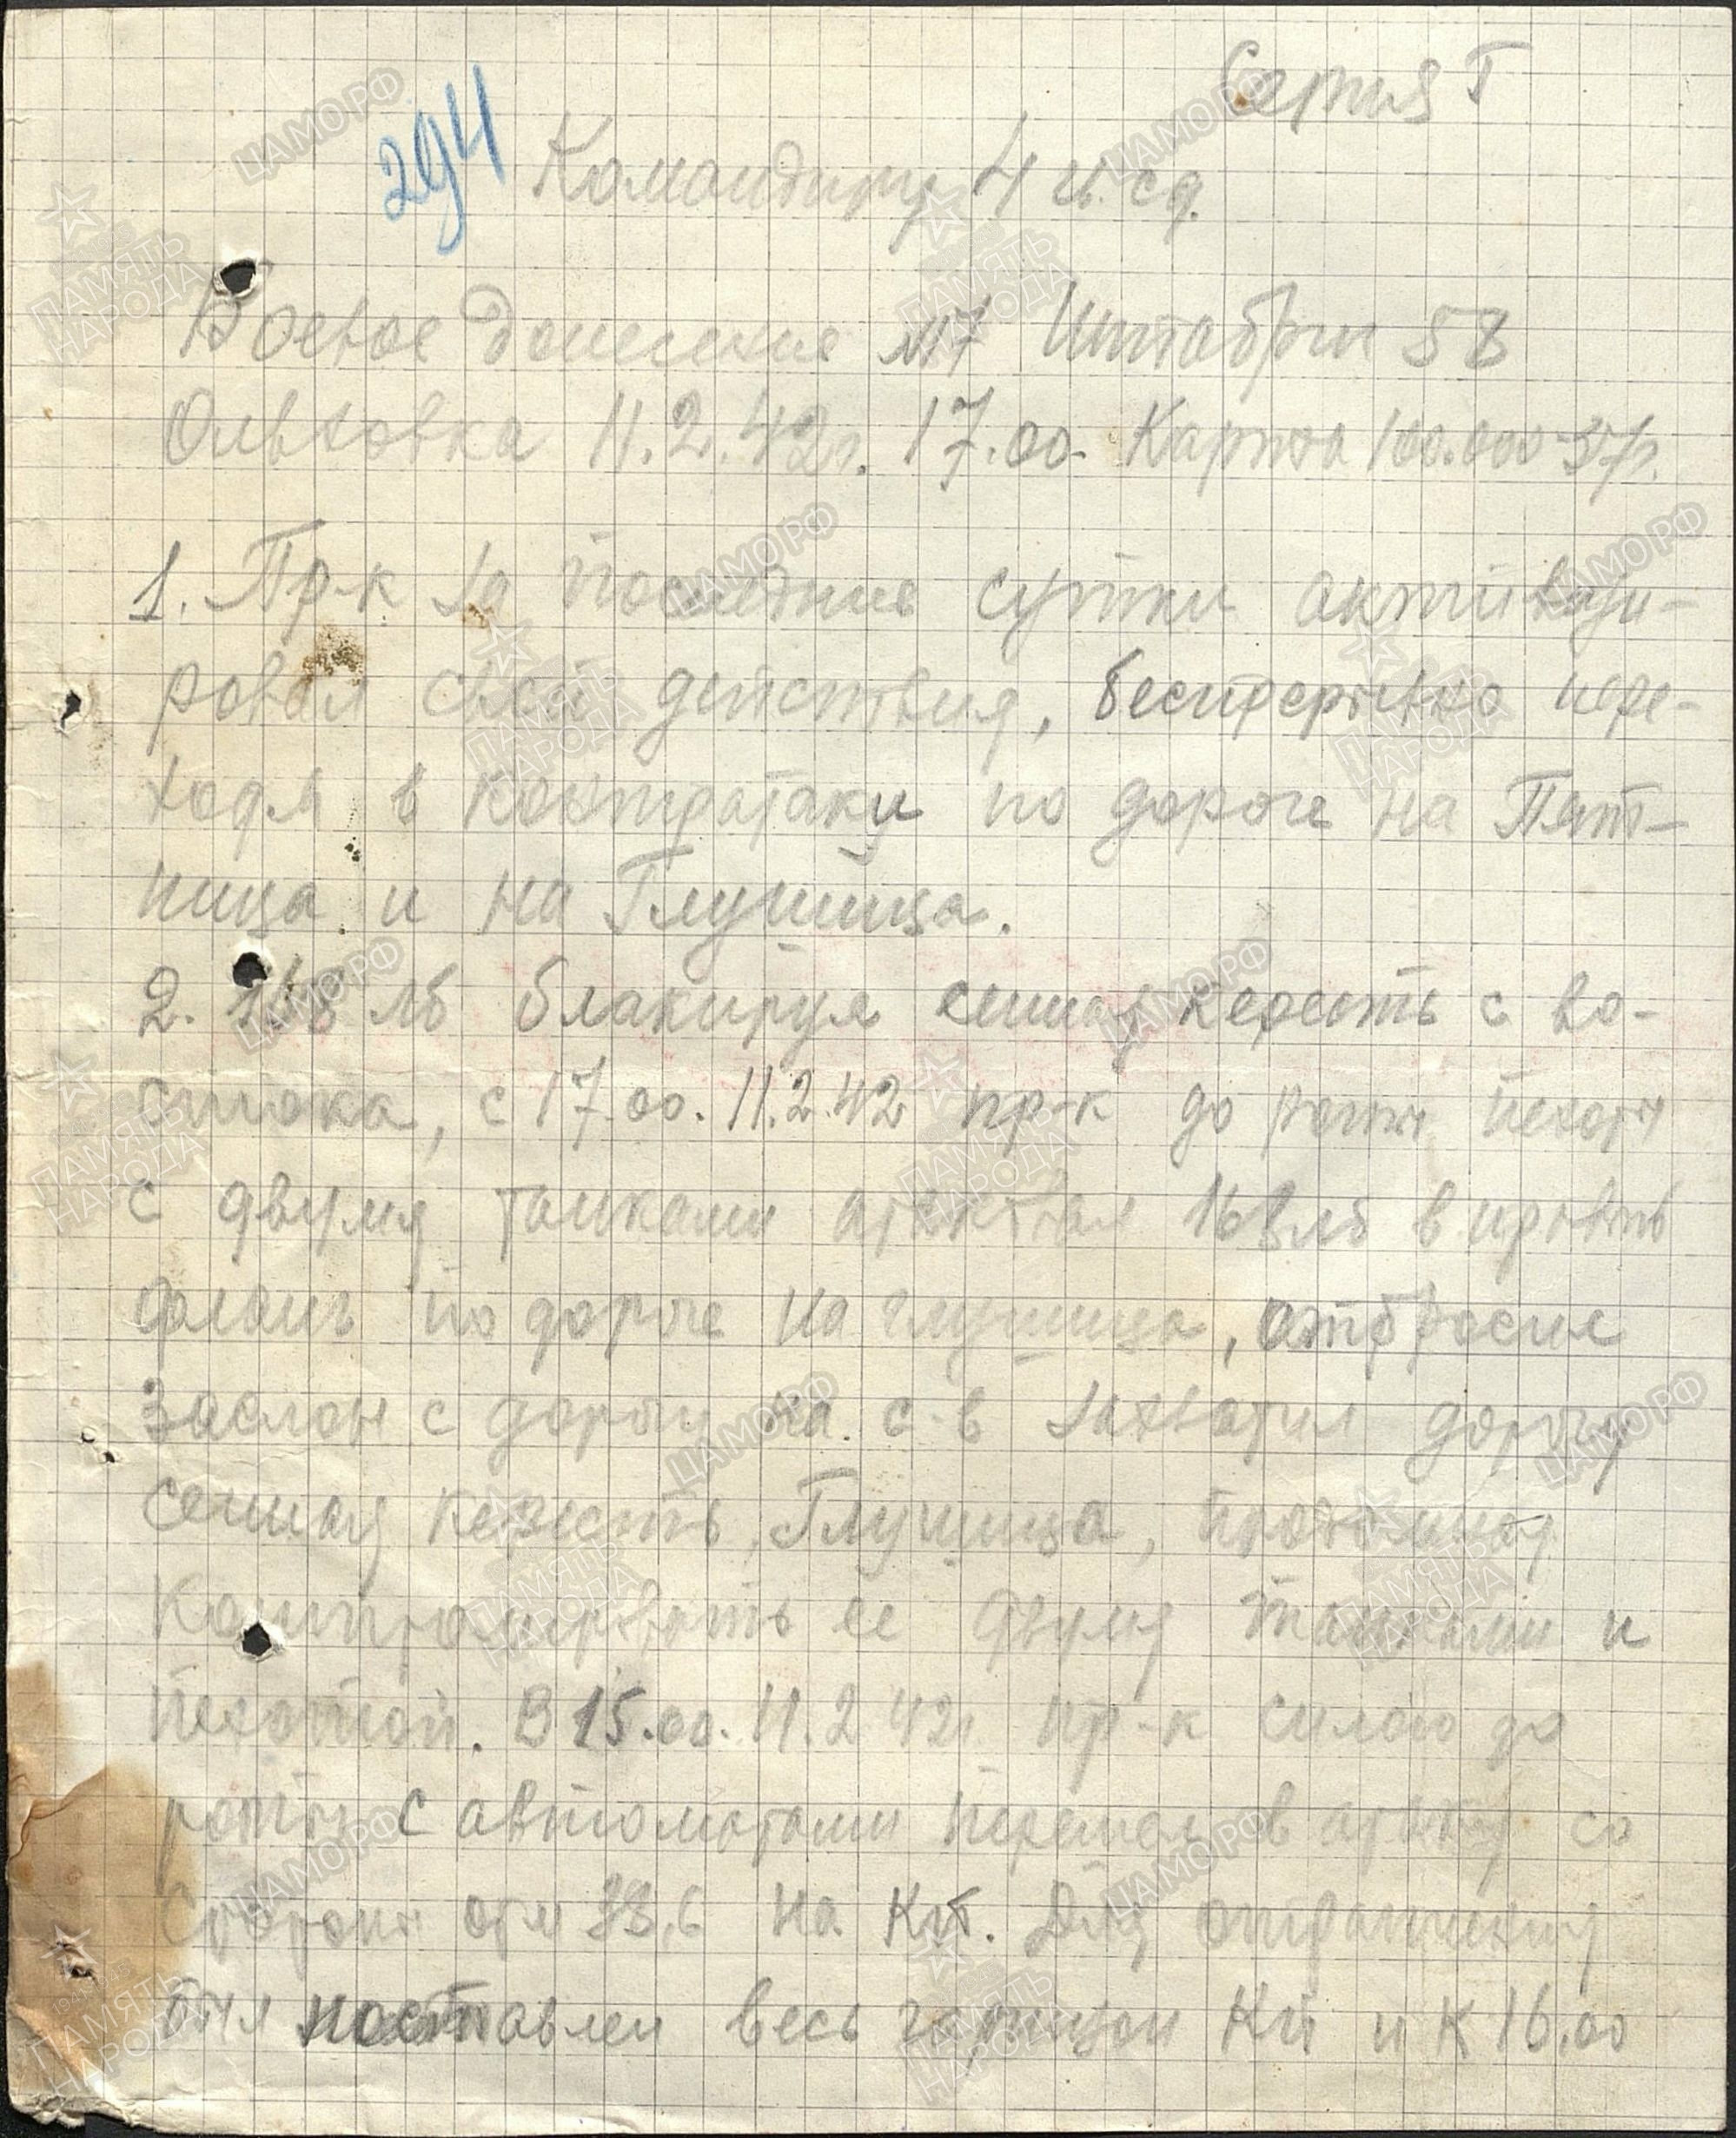 Серия Г
294 Командиру 4 гв. сд.
Боевое донесение №17 Штабриг 58
Ольховка 11.2.42г. 17.00. Карта 100.000-37г.
1. Пр-к за последние сутки активизи-
ровал свои действия, беспрерывно пере-
ходя в контратаку по дороге на Пят-
ница и на Глушица.
2. 168 лб блакируя сенная кересть с во-
стока, с 17.00. 11.2.42 пр-к до роты пехоты
с двумя танками атаковал 168 лб в правый
фланг по дороге на глушица, отбросил
заслон с дороги на с-в захватил дорогу
сенная кересть, Глушица, продолжая
контролировать ее двумя танками и
пехотой. В 15.00. 11.2.42г. пр-к силою до
роты с автоматами перешел в атаку со
стороны отм 38,6 на Кп. Для отражения
был поставлен весь гарнизон Кп и к 16.00
ЦАМО.РФ
ПАМЯТЬ НАРОДА